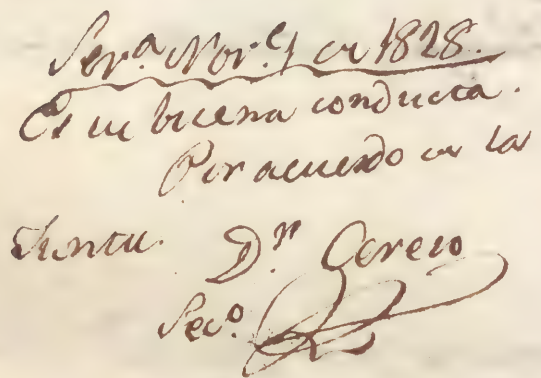 Sev.ª Nov.e 1 de 1828.
Es de buena conducta.
Por acuerdo de la
Junta. D.r Cerero
Sec.o